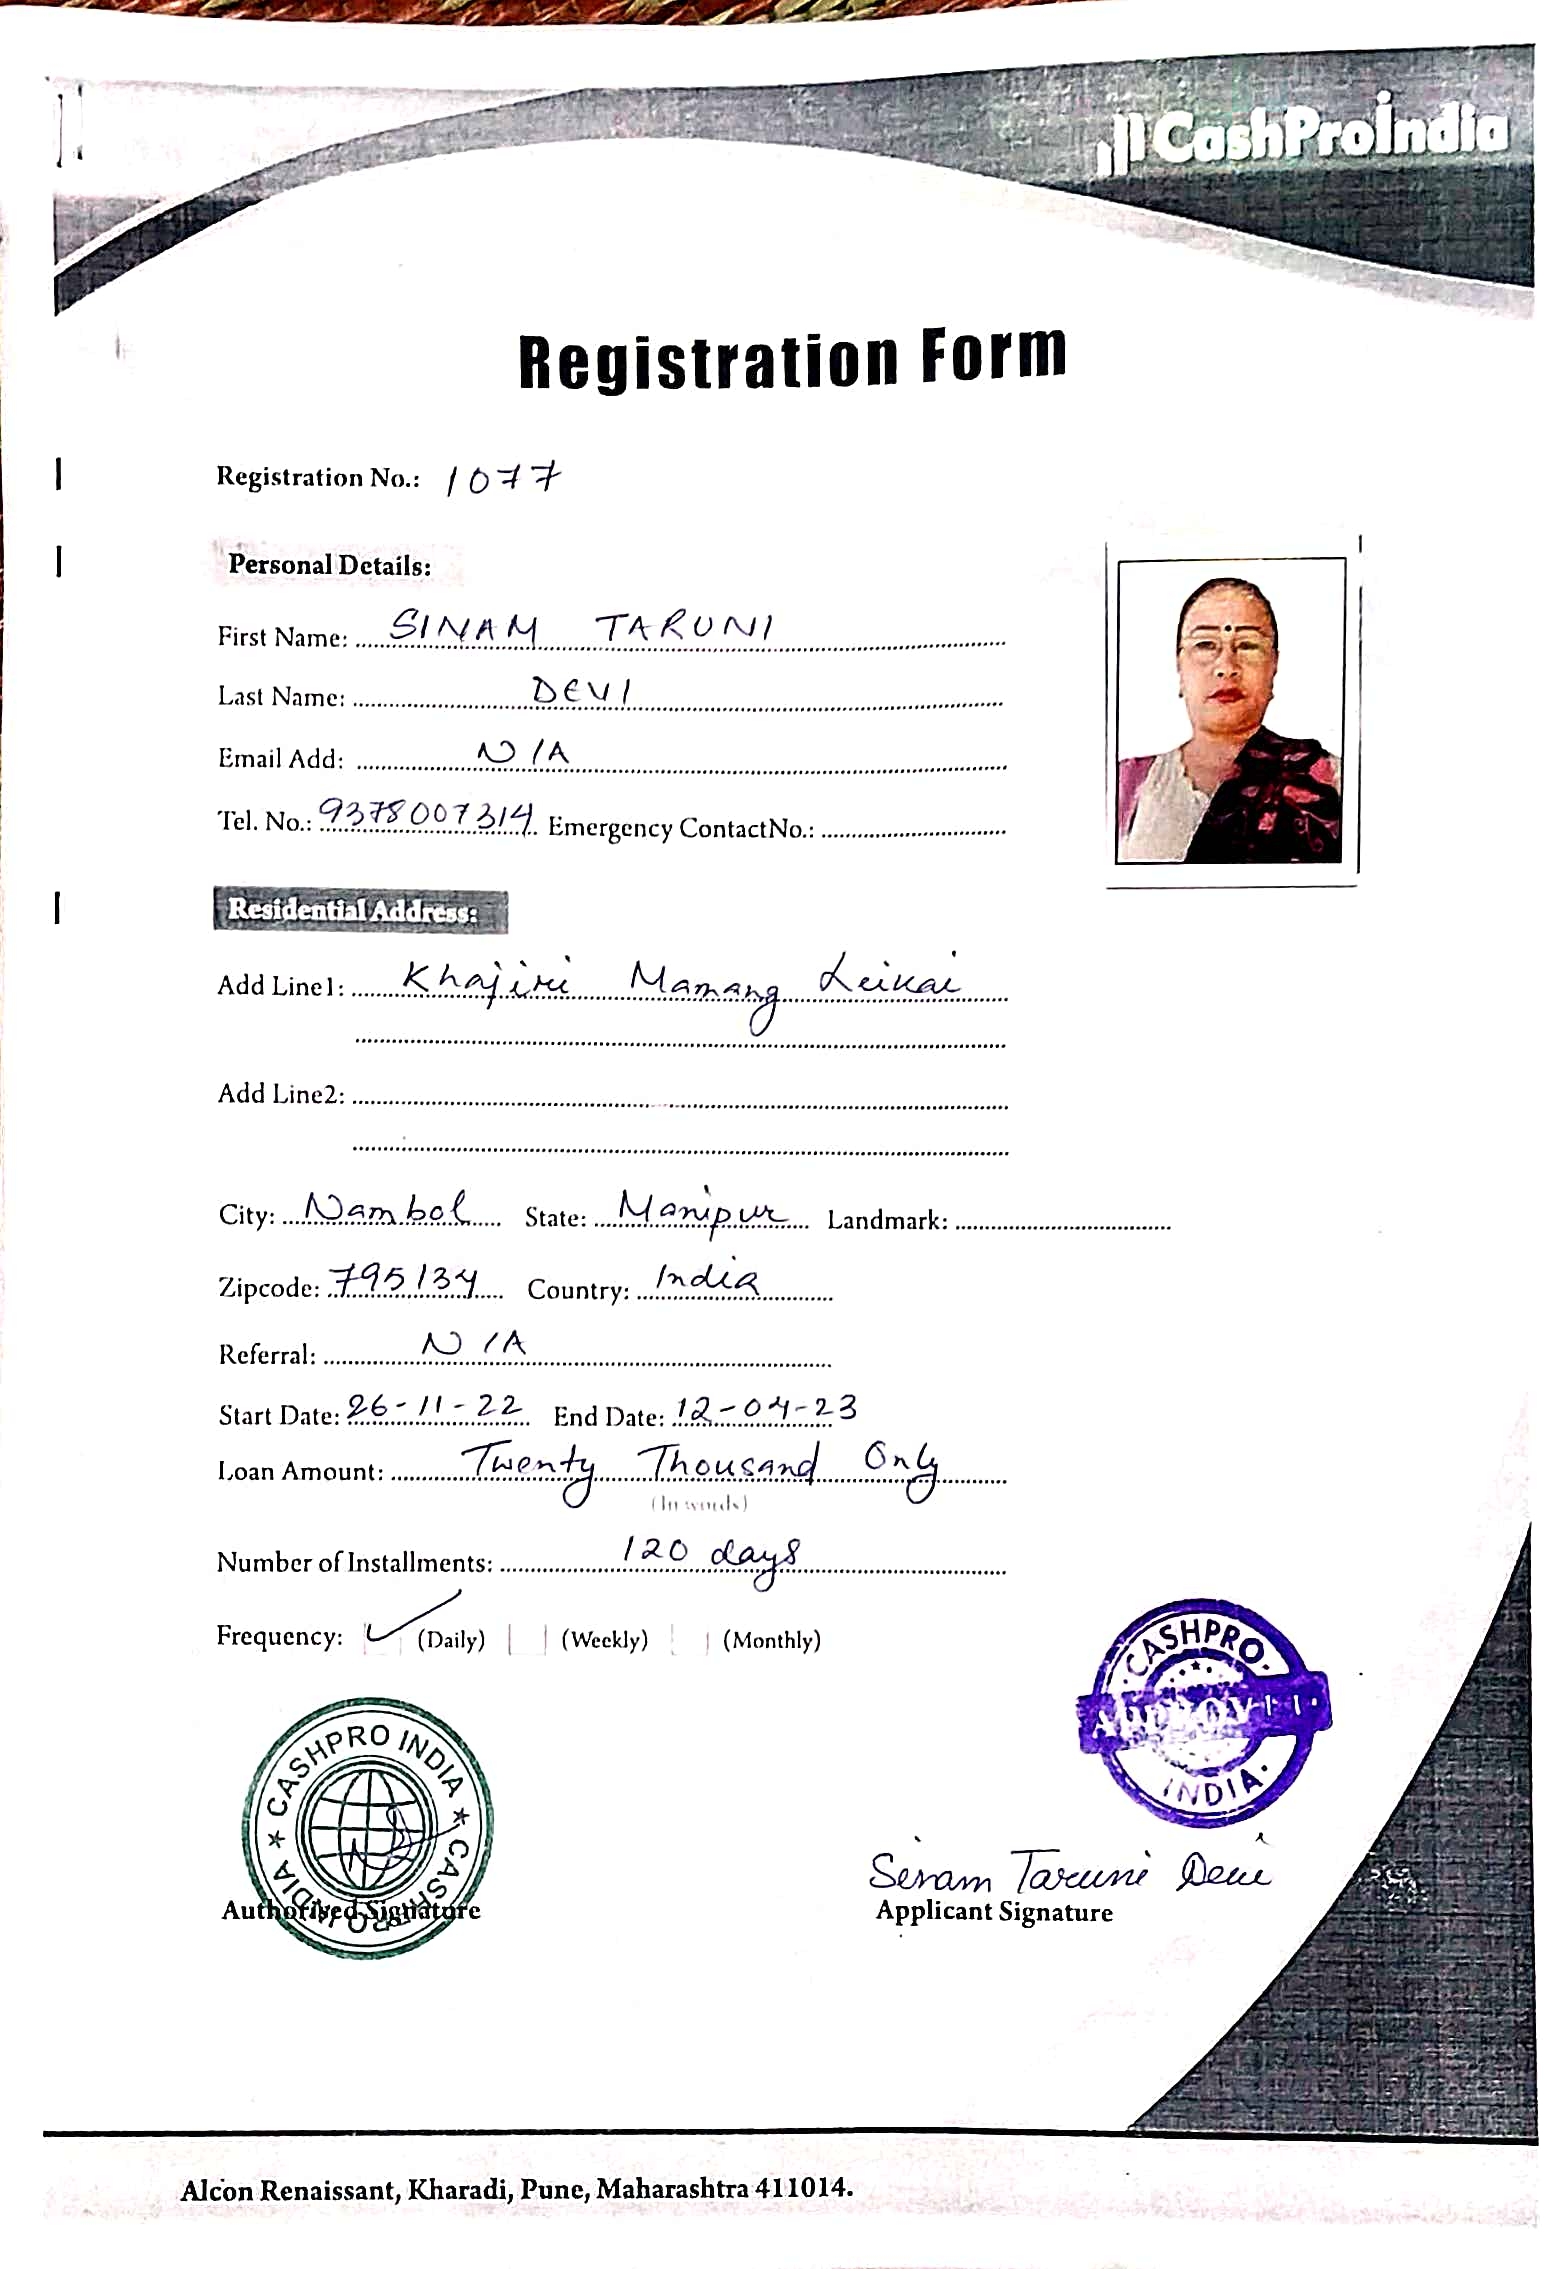 CashProIndia
Registration Form
Registration No.: 1077
Personal Details:
First Name: SINAM TARUNI
Last Name: DEVI
Email Add: N/A
Tel. No.: 9378007314 Emergency ContactNo.:
Residential Address:
Add Line1: Khajiri Mamang Leikai
Add Line2:
City: Nambol State: Manipur Landmark:
Zipcode: 795134 Country: India
Referral: N/A
Start Date: 26-11-22 End Date: 12-04-23
Loan Amount: Twenty Thousand Only
(In words)
Number of Installments: 120 days
Frequency: (Daily) (Weekly) (Monthly)
CASHPRO
APPROVED
INDIA
CASHPRO INDIA ★ CASHPRO INDIA ★
Sinam Taruni Devi
Authorised Signature Applicant Signature
Alcon Renaissant, Kharadi, Pune, Maharashtra 411014.